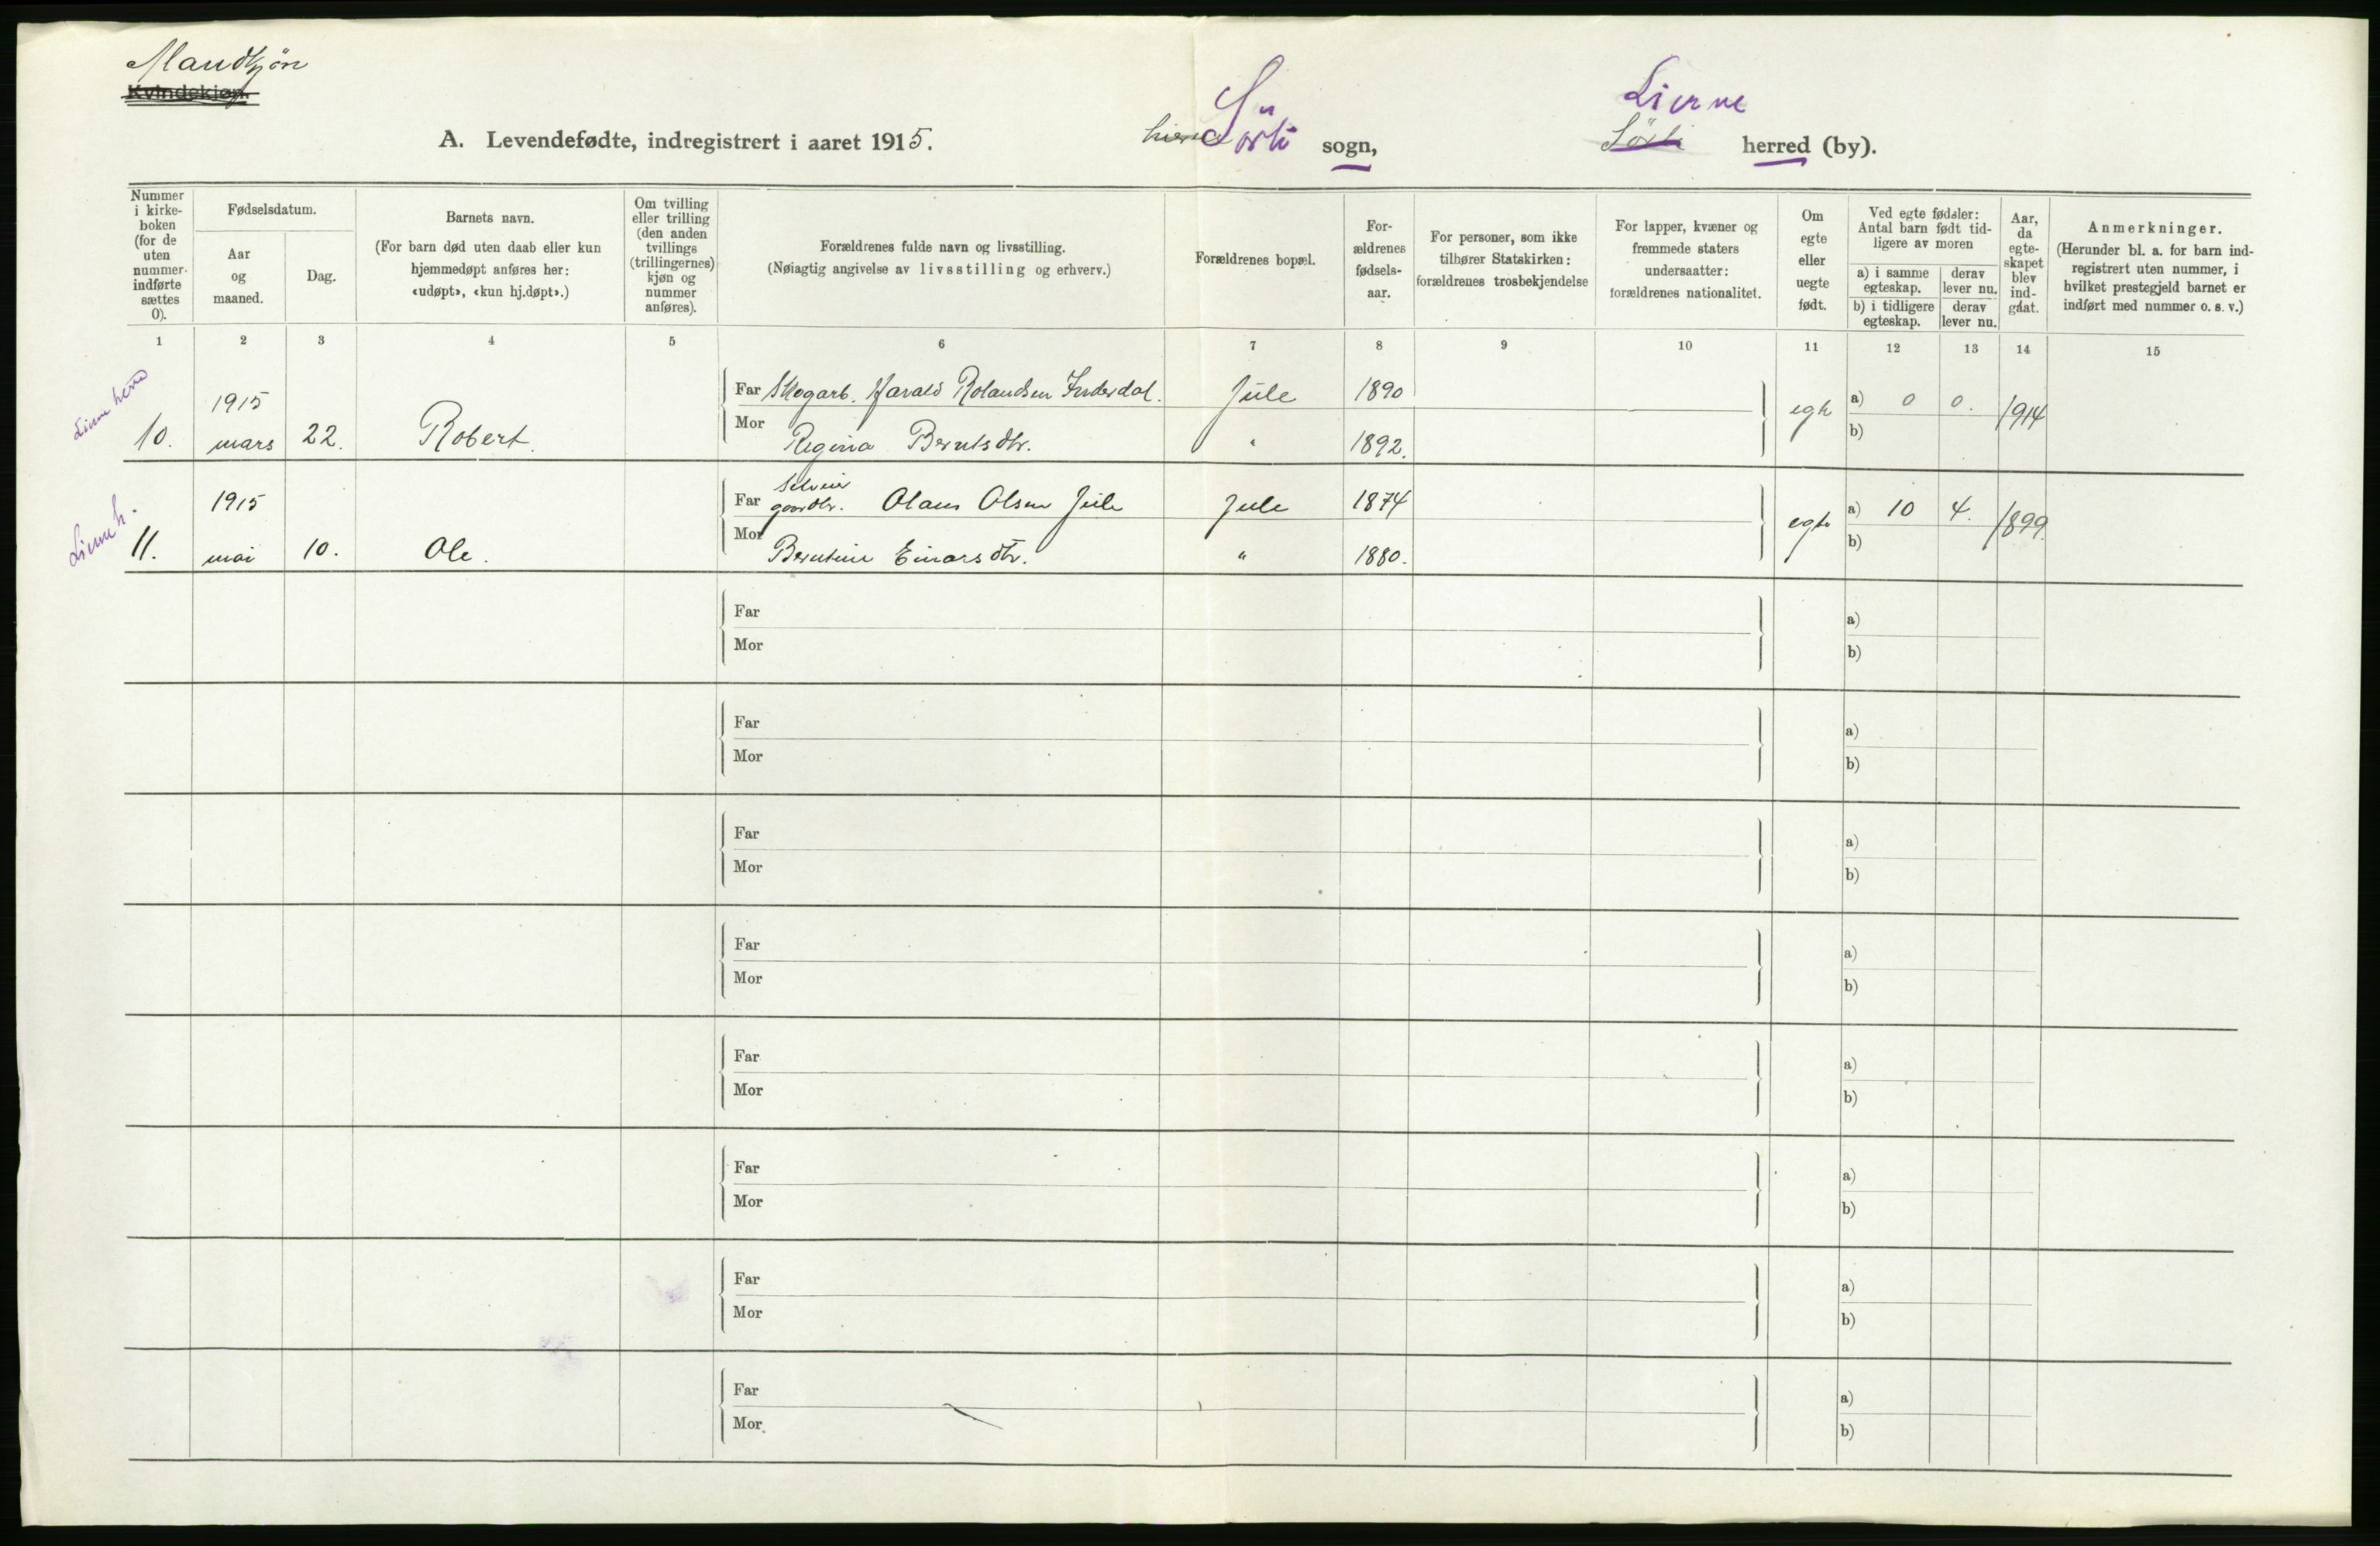 Mandkjön
Kvindekjøn.
A. Levendefødte, indregistrert i aaret 1915. Sörli sogn, Lierne Sörli herred (by).
Nummer i kirkeboken (for de uten nummer indførte sættes 0).
Fødselsdatum.
Aar og maaned.
Dag.
Barnets navn.
(For barn død uten daab eller kun hjemmedøpt anføres her: «udøpt», «kun hj.døpt».)
Om tvilling eller trilling (den anden tvillings (trillingernes) kjøn og nummer anføres).
Forældrenes fulde navn og livsstilling.
(Nøiagtig angivelse av livsstilling og erhverv.)
Forældrenes bopæl.
Forældrenes fødselsaar.
For personer, som ikke tilhører Statskirken: forældrenes trosbekjendelse
For lapper, kvæner og fremmede staters undersaatter: forældrenes nationalitet.
Om egte eller uegte født.
Ved egte fødsler: Antal barn født tidligere av moren
a) i samme egteskap. derav lever nu.
b) i tidligere egteskap. derav lever nu.
Aar, da egteskapet blev indgaat.
Anmerkninger.
(Herunder bl. a. for barn indregistrert uten nummer, i hvilket prestegjeld barnet er indført med nummer o. s. v.)
1 2 3 4 5 6 7 8 9 10 11 12 13 14 15
Lierne herred
1915 Far Skogarb. Harald Rolandsen Inderdal. Jule 1890 a) 0 0.
10. mars 22. Robert. Mor Regina Berntsdtr. " 1892. egte b) 1914
Lierne h.
1915 Far Selveier gaardbr. Olaus Olsen Jule Jule 1874 a) 10 4.
11. mai 10. Ole. Mor Berntine Einarsdtr. " 1880. egte b) 1899.
Far a)
Mor b)
Far a)
Mor b)
Far a)
Mor b)
Far a)
Mor b)
Far a)
Mor b)
Far a)
Mor b)
Far a)
Mor b)
Far a)
Mor b)